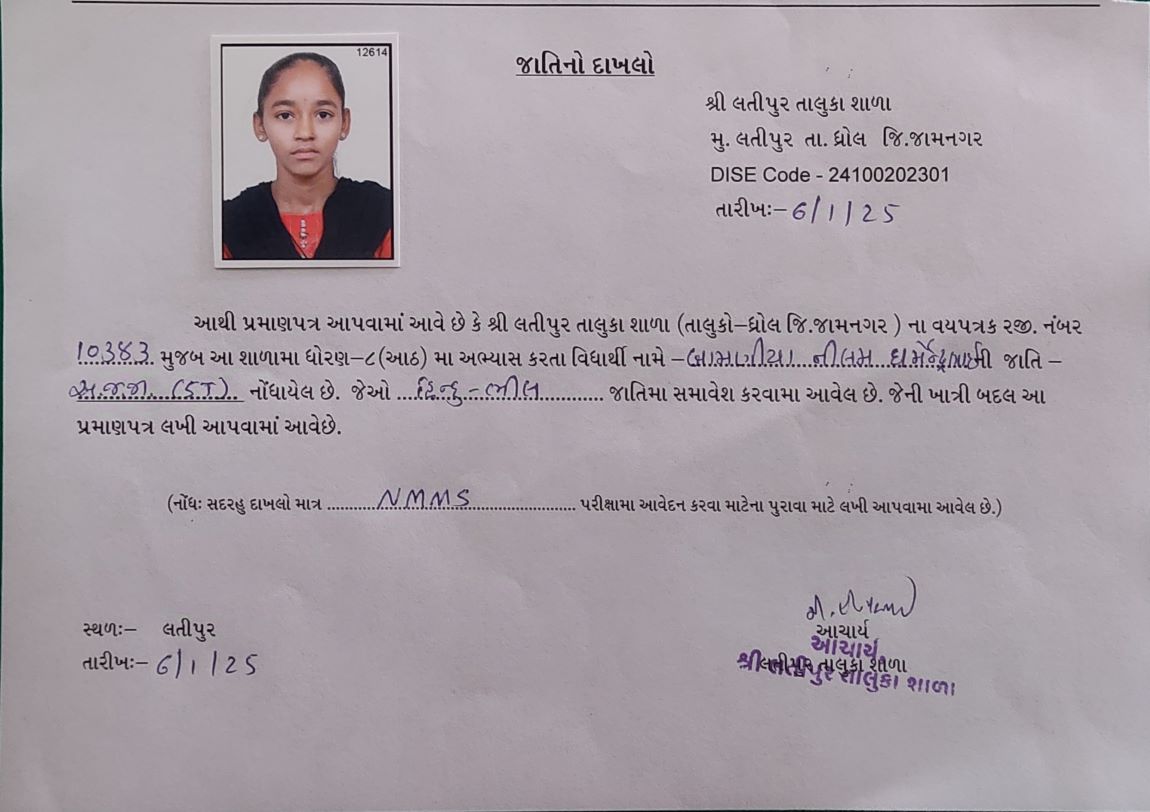 12614
જાતિનો દાખલો
શ્રી લતીપુર તાલુકા શાળા
મુ. લતીપુર તા. ધ્રોલ જિ.જામનગર
DISE Code - 24100202301
તારીખઃ– 6/1/25
આથી પ્રમાણપત્ર આપવામાં આવે છે કે શ્રી લતીપુર તાલુકા શાળા (તાલુકો–ધ્રોલ જિ.જામનગર ) ના વયપત્રક રજી. નંબર
10383 મુજબ આ શાળામા ધોરણ–૮(આઠ) મા અભ્યાસ કરતા વિદ્યાર્થી નામે – બામણીયા નીલમ ધર્મેન્દ્રભાઈની જાતિ –
અ.જ.જા. (ST) નોંધાયેલ છે. જેઓ હિન્દુ – ભીલ જાતિમા સમાવેશ કરવામા આવેલ છે. જેની ખાત્રી બદલ આ
પ્રમાણપત્ર લખી આપવામાં આવેછે.
(નોંધઃ સદરહુ દાખલો માત્ર NMMS પરીક્ષામા આવેદન કરવા માટેના પુરાવા માટે લખી આપવામા આવેલ છે.)
સ્થળઃ– લતીપુર
તારીખઃ– 6/1/25
આચાર્ય
આચાર્ય
લતીપુર તાલુકા શાળા
શ્રી લતીપુર તાલુકા શાળા